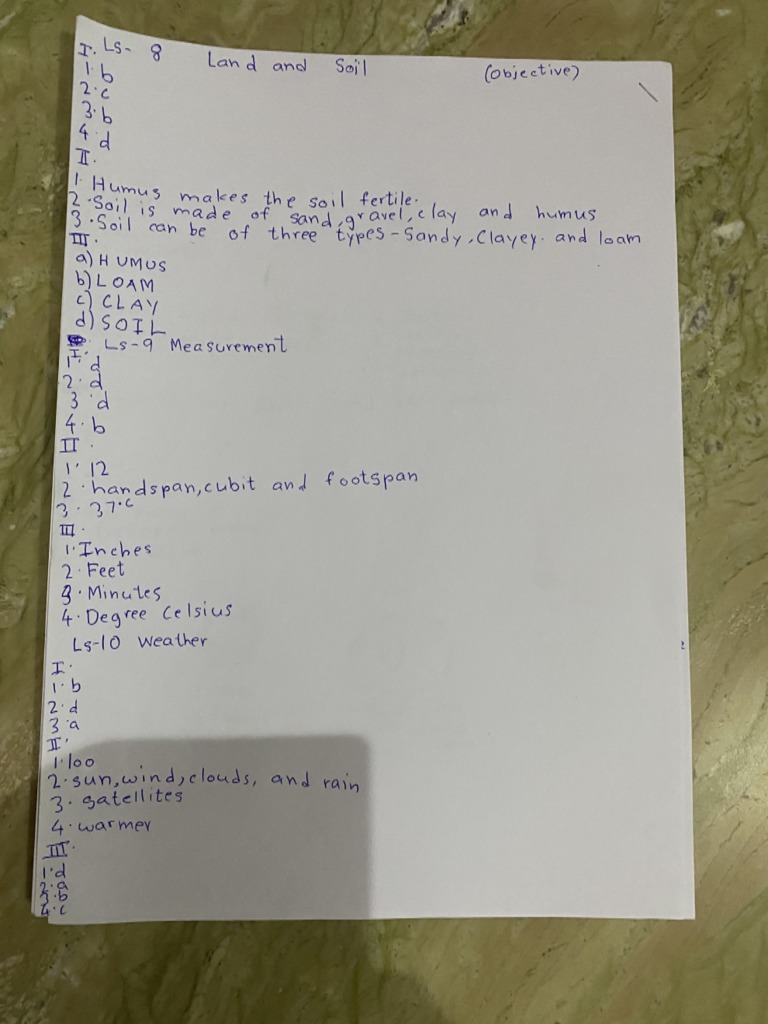 Ls- 8 Land and Soil (objective)
I.
1. b
2. c
3. b
4 d
II.
1. Humus makes the soil fertile.
2. Soil is made of sand, gravel, clay and humus
3. Soil can be of three types - Sandy, Clayey. and loam
III.
a) HUMUS
b) LOAM
c) CLAY
d) SOIL
Ls-9 Measurement
I.
1. d
2. d
3. d
4. b
II.
1. 12
2. handspan, cubit and footspan
3. 37°c
III.
1. Inches
2. Feet
3. Minutes
4. Degree Celsius
Ls-10 Weather
I.
1. b
2. d
3. a
II.
1. loo
2. sun, wind, clouds, and rain
3. satellites
4. warmer
III.
1. d
2. a
3. b
4. c